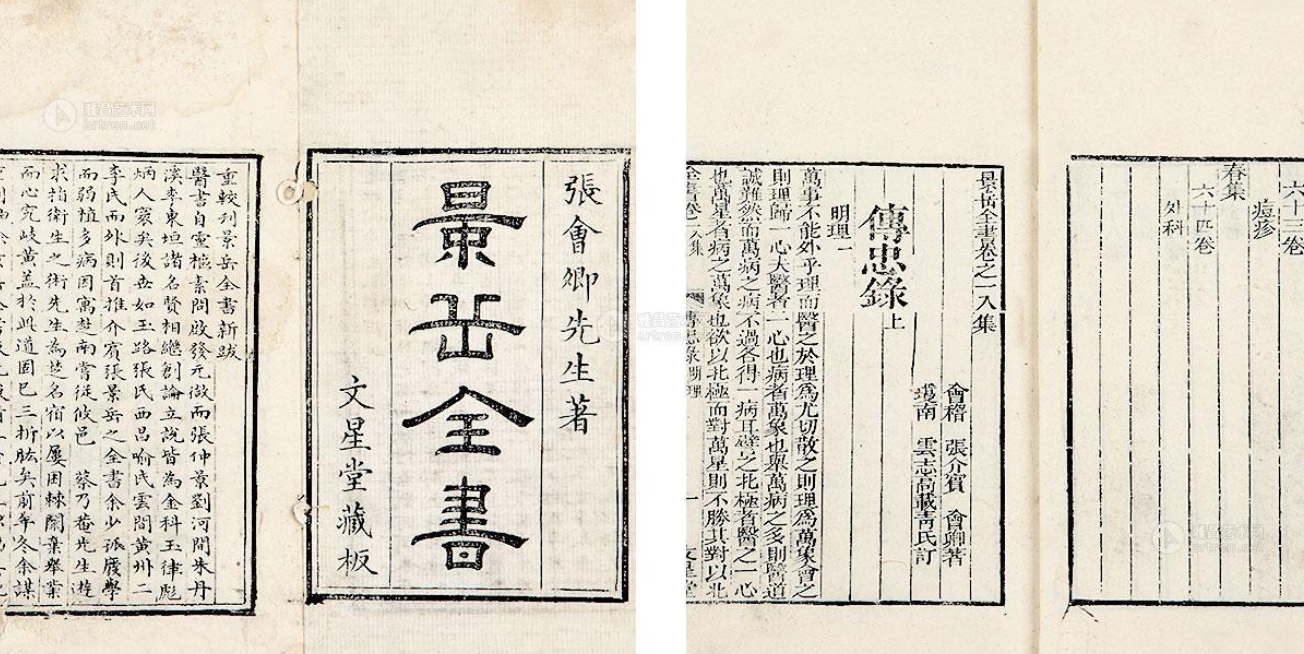 張會卿先生著
景岳全書
文星堂藏板
重較刋景岳全書新跋
醫書自靈樞素問啟發元微而張仲景劉河間朱丹
溪李東垣諸名賢相繼創論立說皆為金科玉律彪
炳人寰矣後世如玉路張氏西昌喻氏雲間黃州二
李氏而外則首推介賓張景岳之全書余少孤廢學
而弱植多病因寓楚南嘗從攸邑 蔡乃菴先生遊
求指衛生之術先生為楚名宿以屢困棘闈棄舉業
而心究岐黃盖於此道固巳三折肱矣前年冬余謀
六十三卷
痘疹
春集
六十四卷
外科
景岳全書卷之一入集
會稽 張介賓 會卿著
雲志高載青氏訂
傳忠錄上
明理一
萬事不能外乎理而醫之於理為尤切散之則理為萬象會之
則理歸一心夫醫者一心也病者萬象也舉萬病之多則醫道
誠難然而萬病之病不過各得一病耳譬之北極者醫之一心
也萬星者病之萬象也欲以北極而對萬星則不勝其對以北
全書卷一入集 傳忠錄 明理 一 文星堂
雅昌艺术网
artron.net